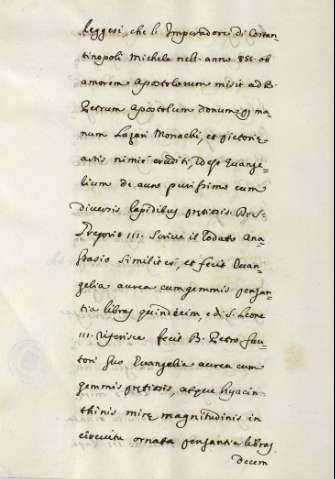 leggesi, che l'Imperadore di Costan=
tinopoli Michele nell'anno 855. ob
amorem Apostolorum misit ad B.
Petrum Apostolum donum p ma=
num Lazari Monachi, et pictoriæ
artis nimis eruditi, idest Evange=
lium de auro purissimo cum
diversis lapidibus pretiosis. Di S.
Gregorio III. scrive il lodato Ana=
stasio similiter, et fecit Evan=
gelia aurea cum gemmis pensan=
tia libras quindecim, e di S. Leone
III. riferisce fecit B. Petro fau=
tori suo Evangelia aurea cum
gemmis pretiosis, atque hyacin=
thinis miræ magnitudinis in
circuitu ornata pensantia libras
decem